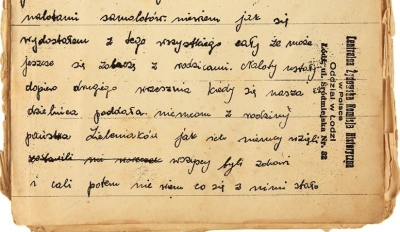 nalotami samolotów. niewiem jak się
wydostałem z tego wszystkiego cały że może
jeszcze się zobaczę z rodzicami. Naloty ustały
dopiero drugiego wrzesznia kiedy się nasza
dzielnica poddała. niemcom z rodziny
państwa Zieleniaków jak ich niemcy wzięli
wszyscy byli zdrowi
i cali potem nie wiem co się z nimi stało
Centralna Żydowska Komisja Historyczna
w Polsce
Oddział w Łodzi
Łódź, ul. Śródmiejska Nr. 22